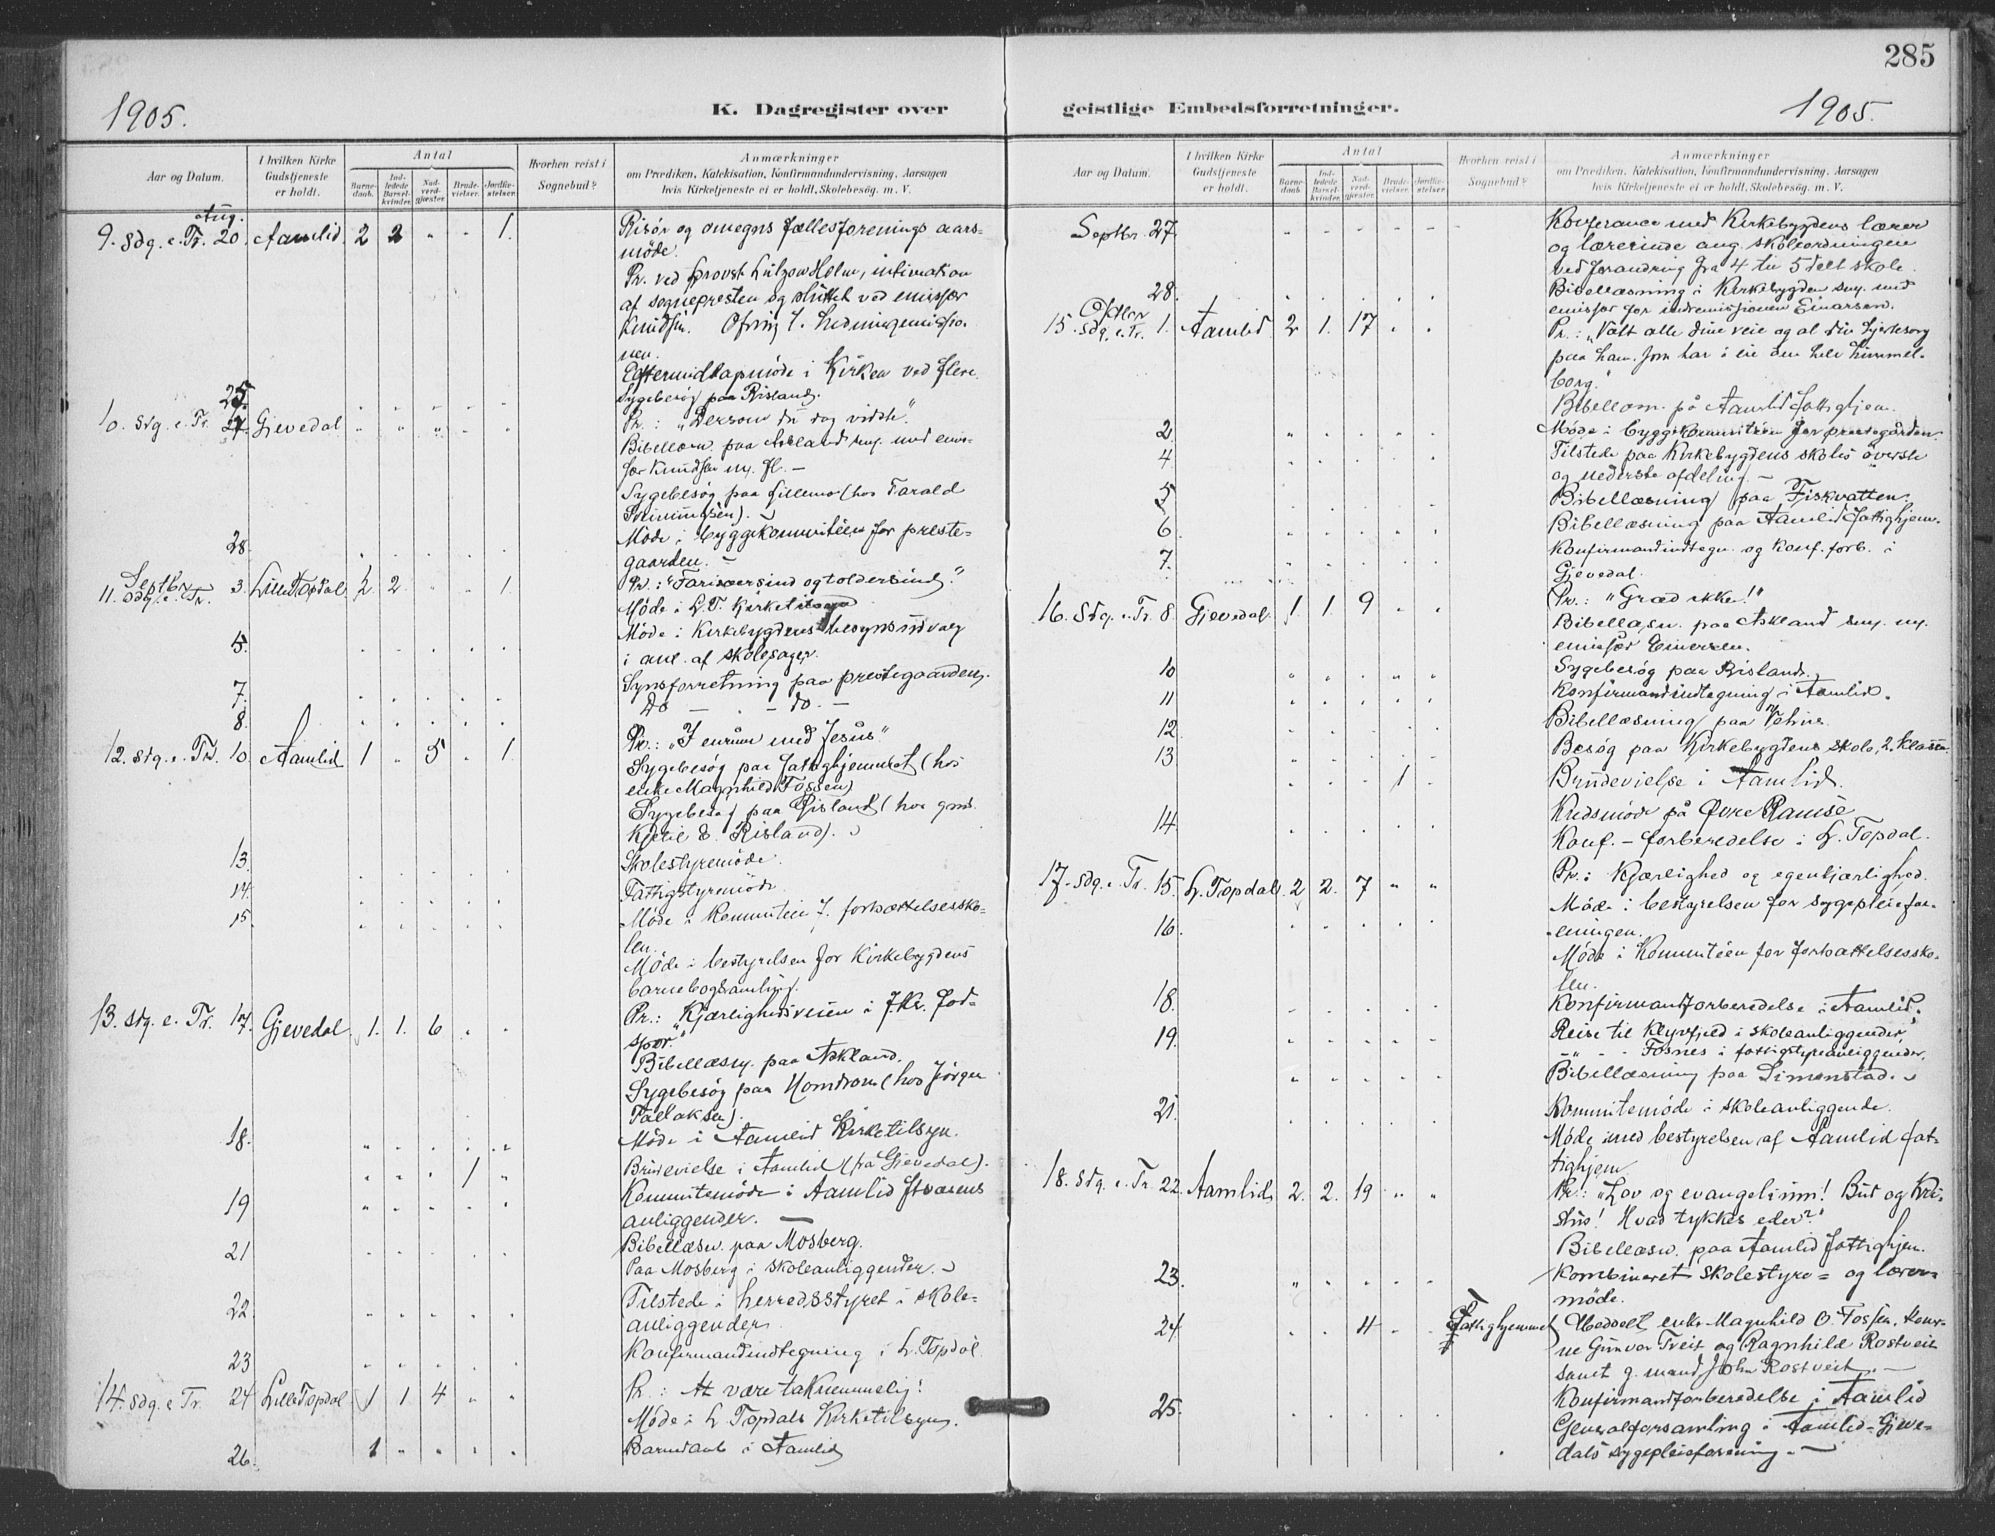 285
1905.
K. Dagregister over
geistlige Embedsforretninger.
1905.
Aar og Datum.
I hvilken Kirke Gudstjeneste er holdt.
Antal
Barnedaab.
Indledede Barselkvinder.
Nadverdgjæster.
Brudevielser.
Jordfæstelser.
Hvorhen reist i Sognebud?
Anmærkninger
om Prædiken, Katekisation, Konfirmandundervisning, Aarsagen
hvis Kirketjeneste ei er holdt, Skolebesøg. m. V.
Aug.
9. Sdg. e. Tr. 20 Aamlid 2 2 " " 1. Risør og omegns fællesforenings aars-
møde.
Pr. ved provst Lützow Holm, intimation
af sognepresten og sluttet ved emissær
Knudsen. Ofring t. hedningemissio-
nen.
Eftermiddagsmøde i Kirken ved flere.
25. Sygebesøg paa Risland.
10. Sdg. e. Tr. 27. Gjevedal " " " " " Pr.: "Dersom du dog vidste".
Bibellæsn. paa Askland sm. med emis-
sær Knudsen m. fl. —
Sygebesøg paa Lillemo (hos Tarald
28. Møde i byggekommiteen for preste-
gaarden. —
Septbr.
11. Sdg. e. Tr. 3. Lille Topdal 2 2 " " 1. Pr.: "Farisæersind og toldersind."
Møde i L. T. Kirketilsyn
5. Møde i Kirkebygdens tilsynsudvalg
i anl. af skolesager.
7. Synsforretning paa prestegaarden.
8. Do — " — do. —
12. Sdg. e. Tr. 10. Aamlid 1 " 5 " 1. Pr.: "I enrum med Jesus"
Sygebesøg paa fattighjemmet (hos
enke Magnhild Fossen)
Sygebesøg paa Risland (hos gmd.
Kjetil E. Risland).
13. Skolestyremøde.
14. Fattigstyremøde.
15. Møde i Kommiteen f. fortsættelsessko-
len.
Møde i bestyrelsen for Kirkebygdens
barnebogsamling.
13. Sdg. e. Tr. 17. Gjevedal 1. 1. 6 " " Pr.: "Kjærlighedsveien i J. Kr. fod-
spor."
Bibellæsn. paa Askland.
Sygebesøg paa Homdrom (hos Jørgen
Tallaksen).
18. Møde i Aamlid Kirketilsyn.
" " " 1 " Brudevielse i Aamlid (frå Gjevedal).
19 Kommitemøde i Aamlid
anliggender. —
21 Bibellæsn. paa Mosberg.
Paa Mosberg i skoleanliggender.
22. Tilstede i herredsstyret i skole-
anliggender.
23 Konfirmandindtegning i L. Topdal.
14. Sdg. e Tr. 24 Lille Topdal. 1 1 4 " " Pr.: At være taknemmelig!
Møde i L. Topdals Kirketilsyn.
26. 1 " " " " Barnedaab i Aamlid
Aar og Datum.
I hvilken Kirke Gudstjeneste er holdt.
Antal
Barnedaab.
Indledede Barselkvinder.
Nadverdgjæster.
Brudevielser.
Jordfæstelser.
Hvorhen reist i Sognebud?
Anmærkninger
om Prædiken, Katekisation, Konfirmandundervisning, Aarsagen
hvis Kirketjeneste ei er holdt, Skolebesøg. m. V.
Septbr. 27. Konferance med Kirkebygdens lærer
og lærerinde ang. skoleordningen
ved forandring fra 4 til 5 delt skole.
28. Bibellæsning i Kirkebygden sm. med
emissær for indremissionen Einarsen.
Oktbr
15. Sdg. e. Tr. 1. Aamlid 2 1. 17 " " Pr.: "Vælt alle dine veie og al din hjertesorg
paa ham, som har i eie den hele himmel-
borg."
Bibellæsn. på Aamlid fattighjem.
2. Møde i byggekommiteen for prestegården.
4 Tilstede paa Kirkebygdens skoles øverste
og nederste afdeling. —
5 Bibellæsning paa Fiskvatten.
6. Bibellæsning paa Aamlid fattighjem.
7. Konfirmandindtegn. og konf. forb. i
Gjevedal.
16. Sdg. e. Tr. 8. Gjevedal. 1. 1. 9 " " Pr.: "Græd ikke!"
Bibellæsn. paa Askland sm. m.
emissær Einersen.
10 Sygebesøg paa Risland.
11 Konfirmandindtegning i Aamlid.
12. Bibellæsning paa Vehus.
13. Besøg paa Kirkebygdens skole, 2. klasse.
" " " 1 " Brudevielse i Aamlid.
14 Kredsmøde på Øvre Ramse
Konf. - forberedelse i L. Topdal.
17. Sdg. e. Tr. 15. L. Topdal 2 2. 7 " " Pr.: Kjærlighed og egenkjærlighed.
16. Møde i bestyrelsen for sygepleiefor-
eningen.
Møde i Kommiteen for fortsættelsessko-
len.
18. Konfirmandforberedelse i Aamlid.
19. Reise til Kleivfjeld i skoleanliggender.
- " - Fosnes i fattigstyreanliggender.
Bibellæsning paa Simonstad.
21. Kommitemøde i skoleanliggende.
Møde med bestyrelsen af Aamlid fat-
tighjem
18. Sdg. e. Tr. 22. Aamlid 2. 2. 19 " " Pr.: "Lov og evangelium! Bud og Kri-
stus! Hvad tykkes eder?"
Bibellæsn. paa Aamlid fattighjem.
23. Kombineret skolestyre= og lærer-
møde.
24 " " 4 " " Fattighjemmet Meddelt enke Magnhild O. Fossen, kone-
ne Gunvor Tveit og Ragnhild Rostveit
samt g. mand John Rostveit. —
25. Konfirmandforberedelse i Aamlid
Generalforsamling i Aamlid-Gjeve-
dals sygepleieforening. —